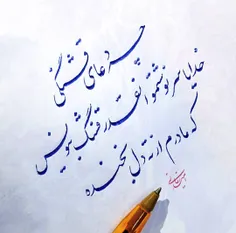 چه دعای قشنگی
خدایا سرنوشتمو آنقدر قشنگ بنویس
که مادرم از ته دل بخنده